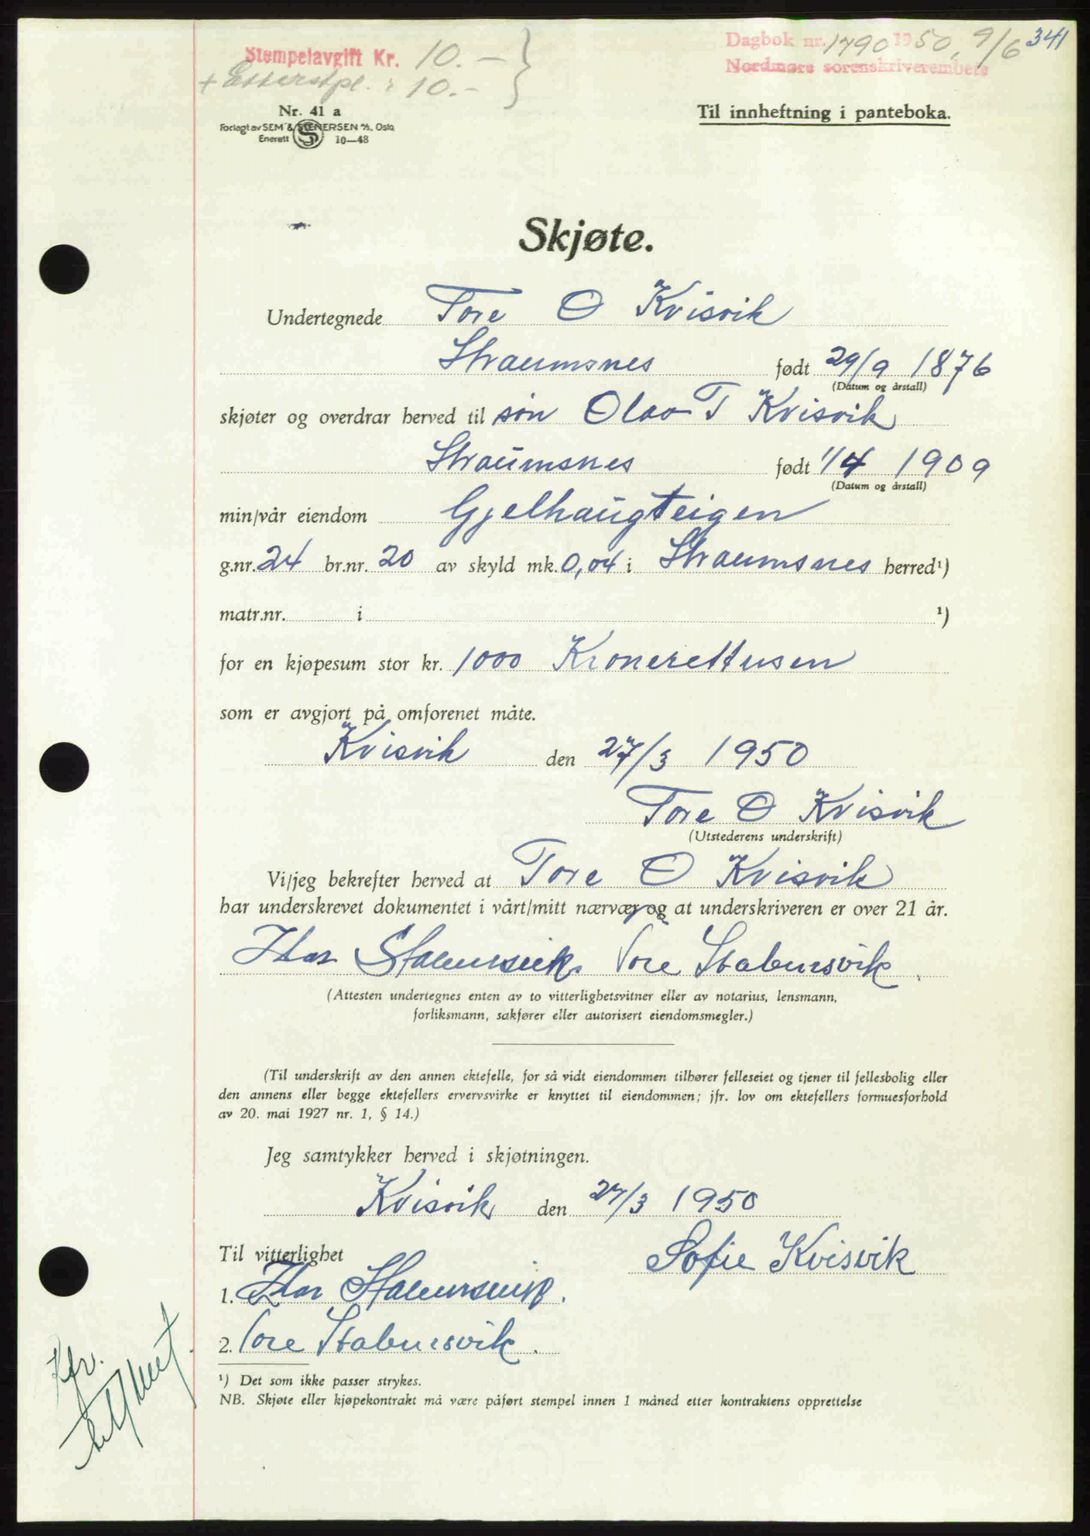 Stempelavgift Kr. 10.-
+ Etterstpl. : 10.-
Dagbok nr. 1790 1950, 9/6 341
Nordmøre sorenskriverembete
Nr. 41 a
Forlagt av SEM & STENERSEN A/S, Oslo
Enerett S 10—48
Til innheftning i panteboka.
Skjøte.
Undertegnede Tore O Kvisvik
Straumsnes født 29/9 1876
(Datum og årstall)
skjøter og overdrar herved til søn Olav T Kvisvik
Straumsnes født 1/4 1909
(Datum og årstall)
min/vår eiendom Gjelhaugteigen
g.nr. 24 br.nr. 20 av skyld mk. 0,04 i Straumsnes herred¹)
matr.nr. i ¹)
for en kjøpesum stor kr. 1000 Kronerettusen
som er avgjort på omforenet måte.
Kvisvik den 27/3 1950
Tore O Kvisvik
(Utstederens underskrift)
Vi/jeg bekrefter herved at Tore O Kvisvik
har underskrevet dokumentet i vårt/mitt nærvær og at underskriveren er over 21 år.
Tore Stabursvik.
(Attesten undertegnes enten av to vitterlighetsvitner eller av notarius, lensmann,
forliksmann, sakfører eller autorisert eiendomsmegler.)
(Til underskrift av den annen ektefelle, for så vidt eiendommen tilhører felleseiet og tjener til fellesbolig eller
den annens eller begge ektefellers ervervsvirke er knyttet til eiendommen; jfr. lov om ektefellers formuesforhold
av 20. mai 1927 nr. 1, § 14.)
Jeg samtykker herved i skjøtningen.
Kvisvik den 27/3 1950
Til vitterlighet Sofie Kvisvik
1.
2. Tore Stabursvik.
¹) Det som ikke passer strykes.
NB. Skjøte eller kjøpekontrakt må være påført stempel innen 1 måned etter kontraktens opprettelse